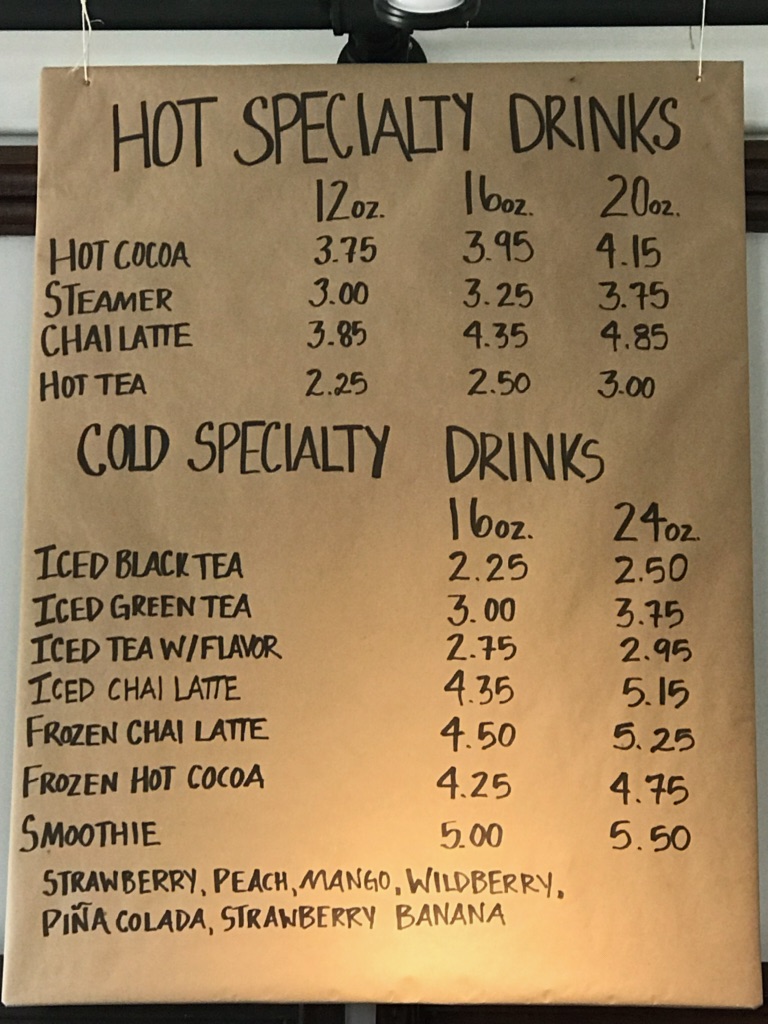 HOT SPECIALTY DRINKS
12oz. 16oz. 20oz.
HOT COCOA 3.75 3.95 4.15
STEAMER 3.00 3.25 3.75
CHAI LATTE 3.85 4.35 4.85
HOT TEA 2.25 2.50 3.00
COLD SPECIALTY DRINKS
16oz. 24oz.
ICED BLACK TEA 2.25 2.50
ICED GREEN TEA 3.00 3.75
ICED TEA W/FLAVOR 2.75 2.95
ICED CHAI LATTE 4.35 5.15
FROZEN CHAI LATTE 4.50 5.25
FROZEN HOT COCOA 4.25 4.75
SMOOTHIE 5.00 5.50
STRAWBERRY, PEACH, MANGO, WILDBERRY,
PIÑA COLADA, STRAWBERRY BANANA